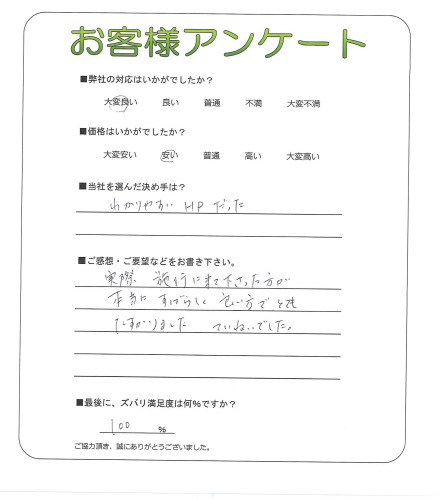 お客様アンケート
■弊社の対応はいかがでしたか？
大変良い 良い 普通 不満 大変不満
■価格はいかがでしたか？
大変安い 安い 普通 高い 大変高い
■当社を選んだ決め手は？
わかりやすい HP だった
■ご感想・ご要望などをお書き下さい。
実際 施行に来て下さった方が
本当に すばらしく 良い方で とても
たすかりました ていねいでした。
■最後に、ズバリ満足度は何％ですか？
100 ％
ご協力頂き、誠にありがとうございました。